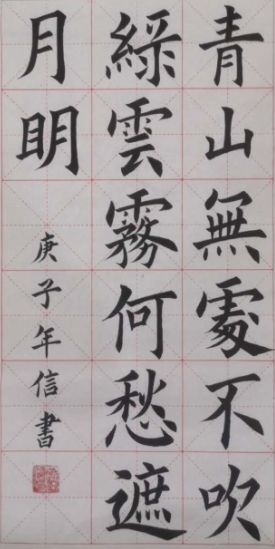 青山無處不吹
綠雲霧何愁遮
月明
庚子年信書